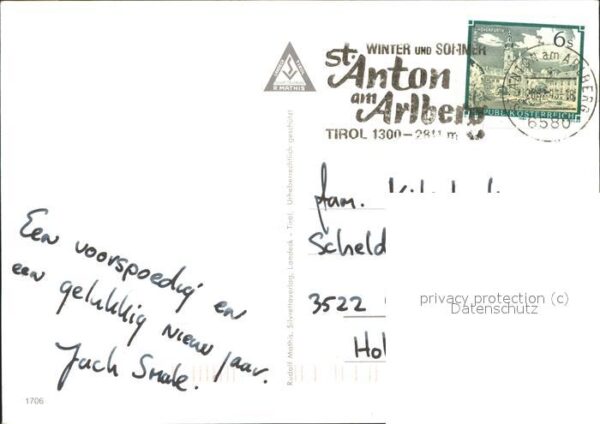 Een voorspoedig en
een gelukkig nieuw jaar.
Jach Smale.
1706
Rudolf Mathis, Silvrettaverlag, Landeck - Tirol. Urheberrechtlich geschützt
R MATHIS
WINTER UND SOMMER
St. Anton
am
Arlberg
TIROL 1300-2811 m
6 S
REPUBLIK ÖSTERREICH
am ARLBERG
6580
fam.
Scheld
3522
Hol
privacy protection (c)
Datenschutz